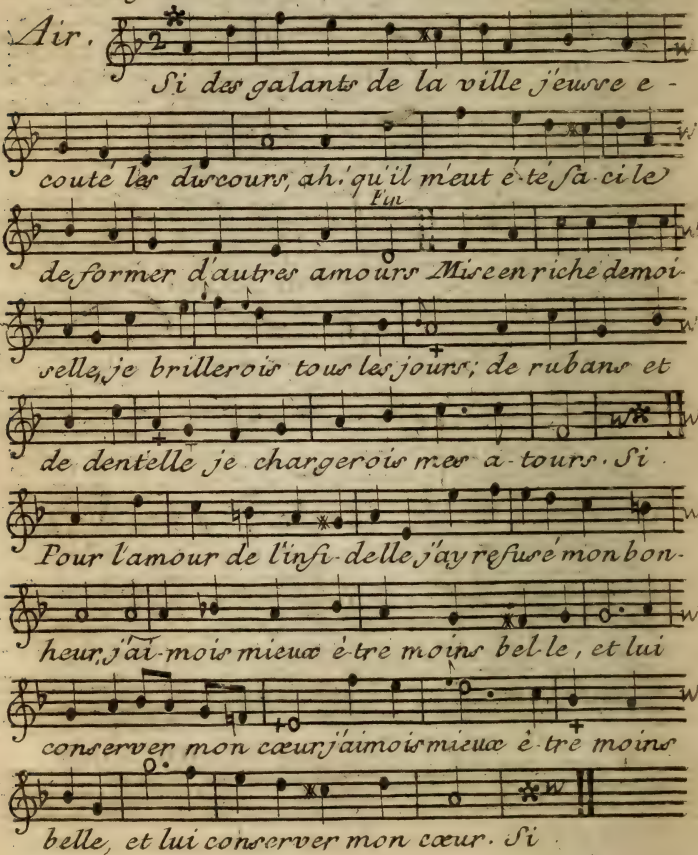 Air.
2
Si des galants de la ville j'eusse e-
couté les discours, ah! qu'il m'eut é-té fa-ci-le
Fin
de former d'autres amours Mise en riche demoi-
selle, je brillerois tous les jours; de rubans et
de dentelle je chargerois mes a-tours. Si
Pour l'amour de l'infi-delle j'ay refusé mon bon-
heur, j'ai-mois mieux ê-tre moins bel-le, et lui
conserver mon cœur j'aimois mieux ê-tre moins
belle, et lui conserver mon cœur. Si